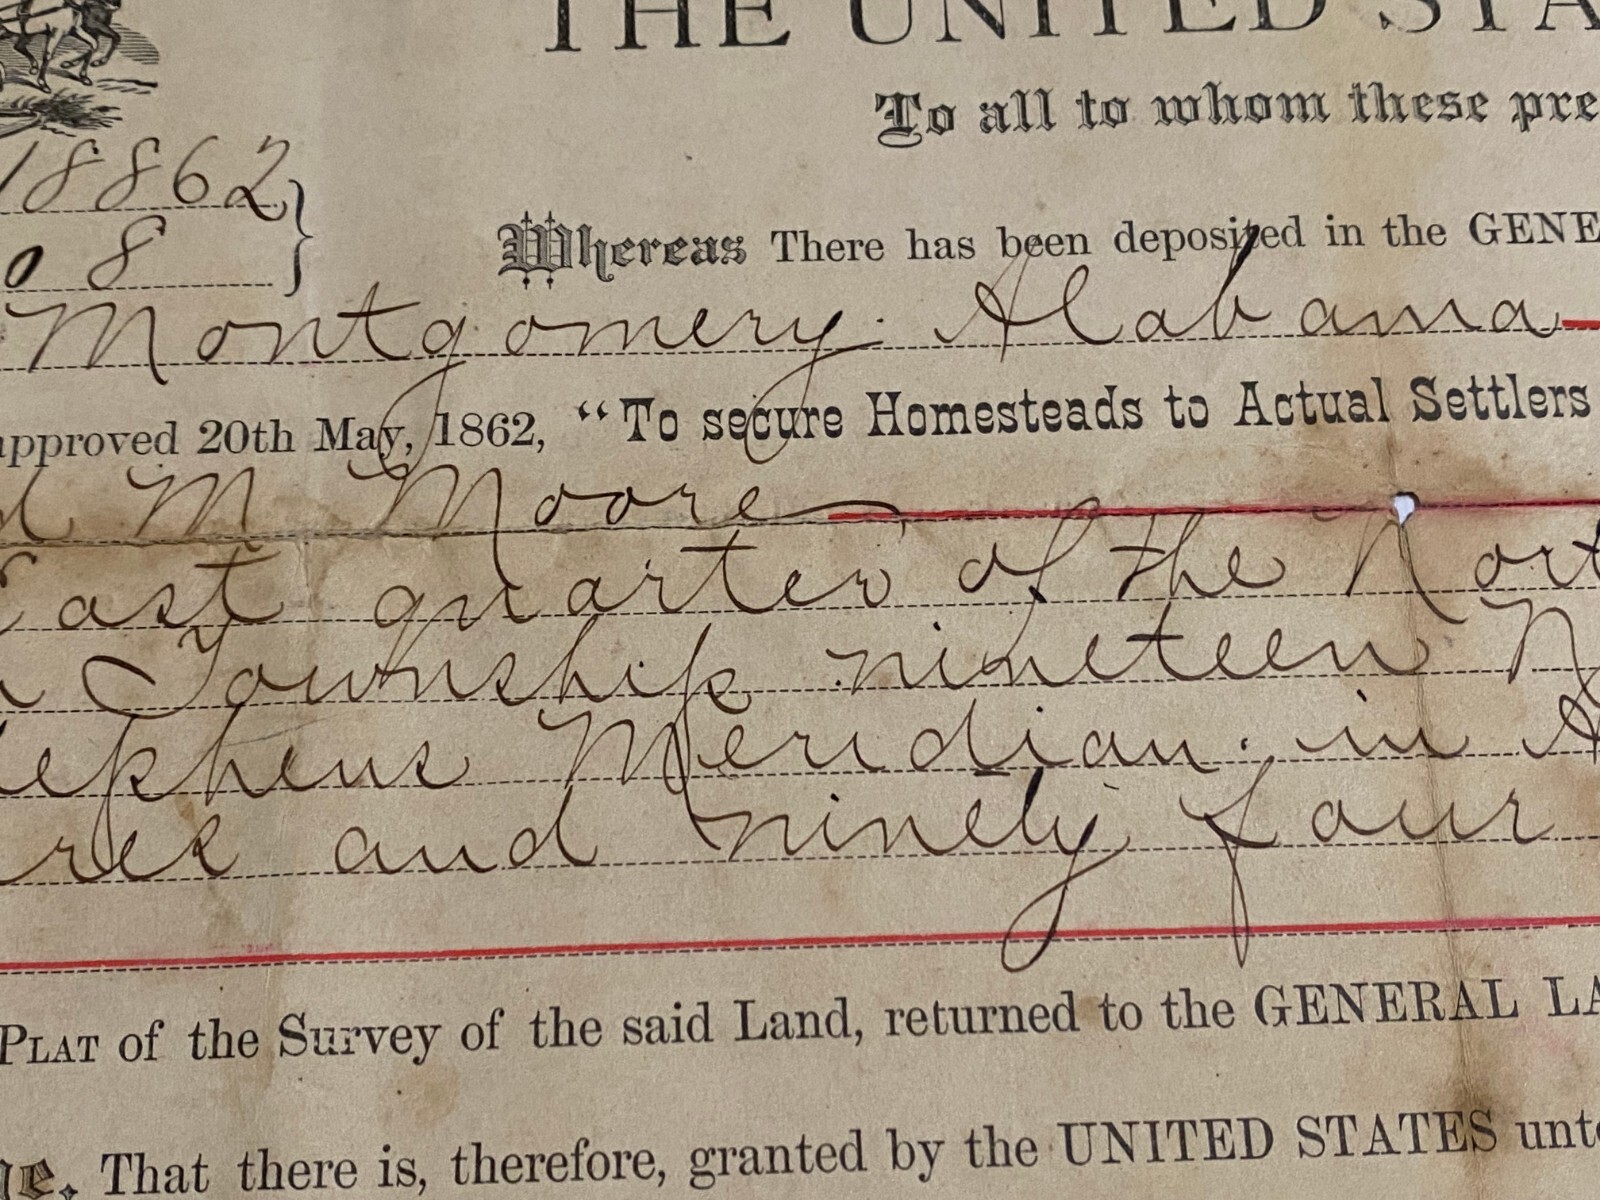 THE UNITED STA
To all to whom these pre
18862
o 8
Whereas There has been deposited in the GENE
Montgomery. Alabama
approved 20th May, 1862, “To secure Homesteads to Actual Settlers
d M Moore
East quarter of the Nort
Township nineteen N
ephens Meridian. in A
res and ninety four
PLAT of the Survey of the said Land, returned to the GENERAL LA
ye. That there is, therefore, granted by the UNITED STATES unto